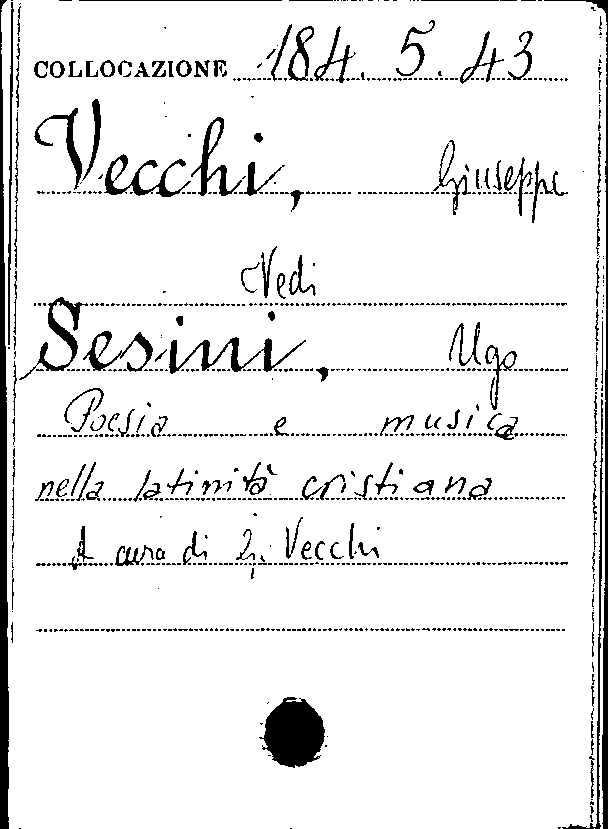 COLLOCAZIONE 184. 5. 43
Vecchi, Giuseppe
Vedi
Sesini, Ugo
Poesia e musica
nella latinità cristiana
A cura di G. Vecchi